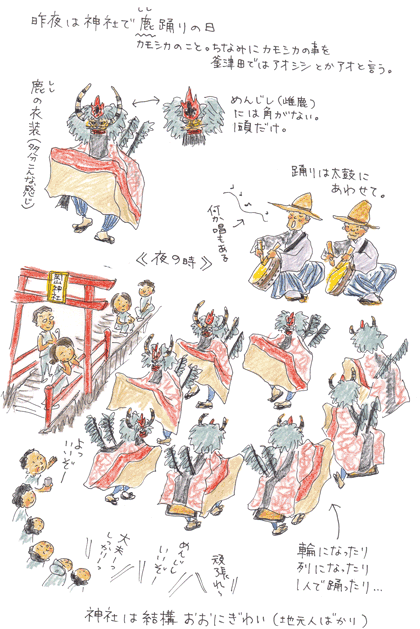 昨夜は神社で鹿踊りの日
しし
カモシカのこと。ちなみにカモシカの事を
釜津田ではアオシシとかアオと言う。
鹿の衣装(多分こんな感じ)
しし
めんじし(雌鹿)
には角がない。
1頭だけ。
踊りは太鼓に
あわせて。
何か唱もある
《夜の時》
神社
よっ
いいぞー
大夫ーっ
しっかりー
めんじし
いいぞー
頑張れ〜
輪になったり
列になったり
1人で踊ったり…
神社は結構おおにぎわい(地元人ばかり)